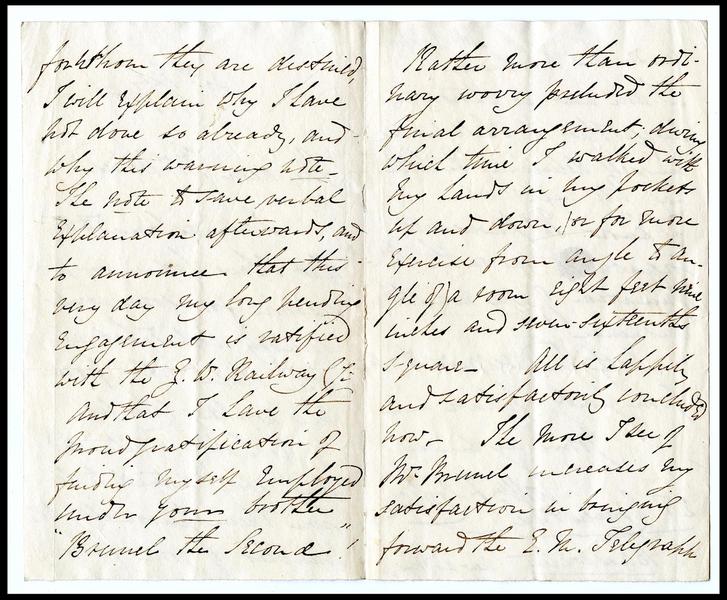 for whom they are destined,
I will explain why I have
not done so already, and
why this warning note.
The note to save verbal
explanation afterwards, and
to announce that this
very day my long pending
engagement is ratified
with the G. W. Railway Co:
and that I have the
proud gratification of
finding myself employed
under your brother
"Brunel the Second"!
Rather more than ordi-
nary worry preluded the
final arrangement, during
which time I walked with
my hands in my pockets
up and down, (or for more
exercise from angle to an-
gle of) a room eight feet nine
inches and seven-sixteenths
square— All is happily
and satisfactorily concluded
now— The more I see of
Mr. Brunel increases my
satisfaction in bringing
forward the E. M. Telegraph